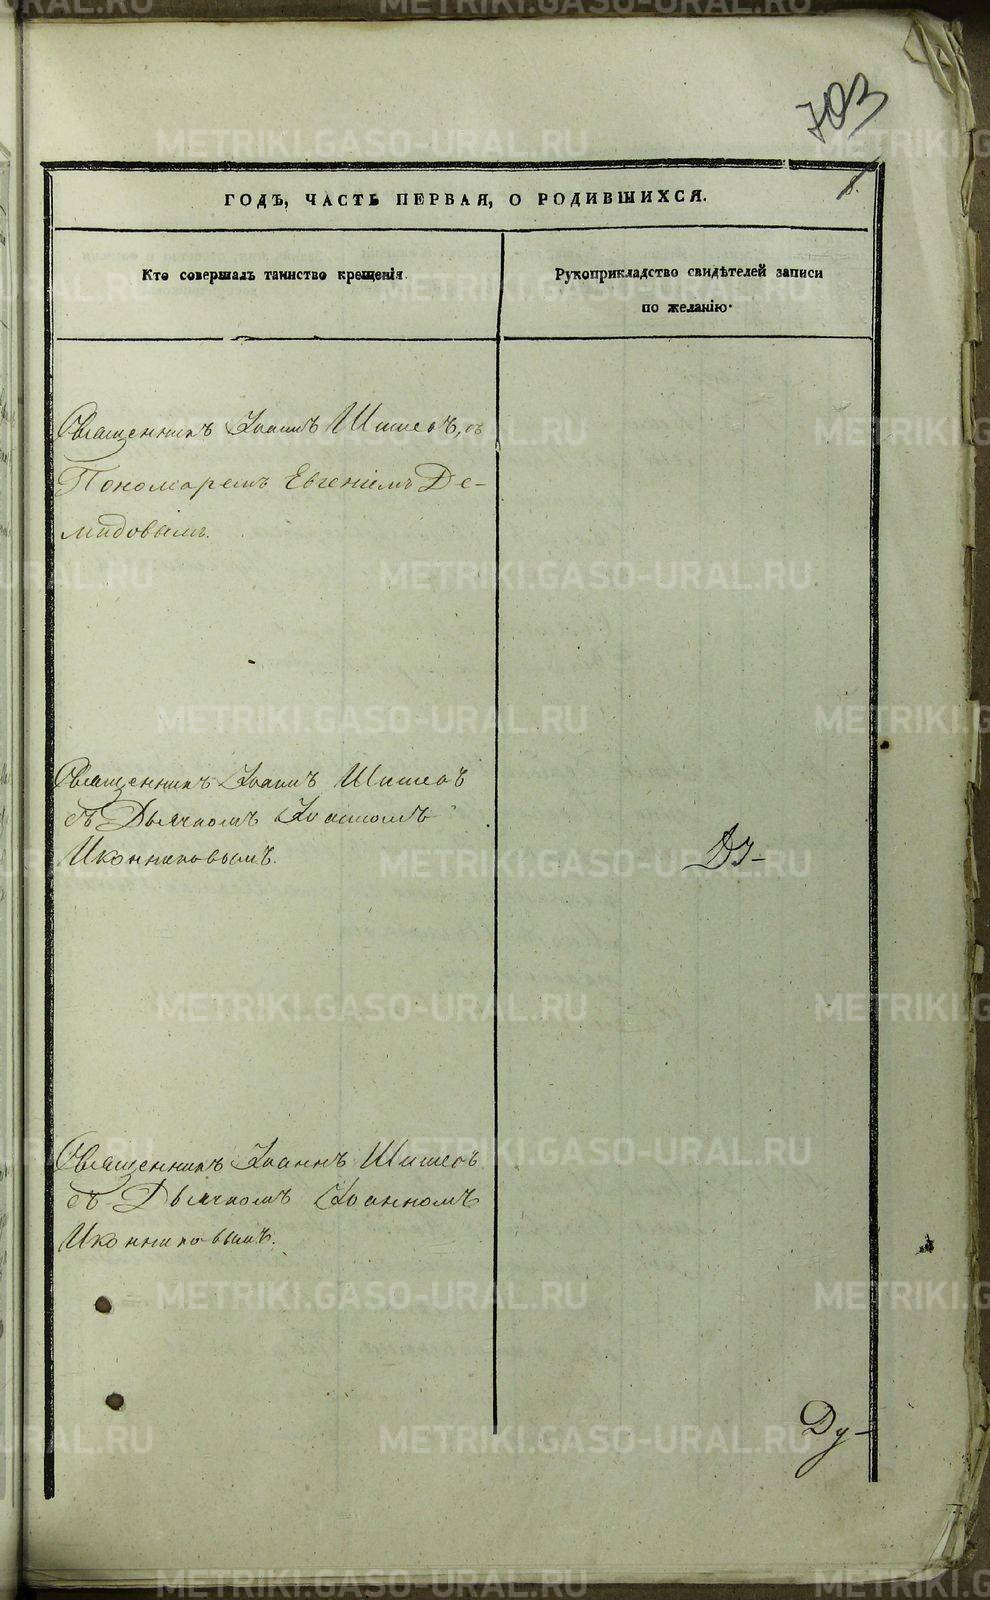 703
ГОДЪ, ЧАСТЬ ПЕРВАЯ, О РОДИВШИХСЯ.
Кто совершалъ таинство крещенія.
Рукоприкладство свидѣтелей записи
по желанію.
Священникъ Іоаннъ Шишевъ, съ
Пономаремъ Евгеніемъ Де-
мидовымъ.
Священникъ Іоаннъ Шишевъ
съ Дьячкомъ Іоанномъ
Иконниковымъ.
Священникъ Іоаннъ Шишевъ
съ Дьячкомъ Іоанномъ
Иконниковымъ.
Ду-
METRIKI.GASO-URAL.RU